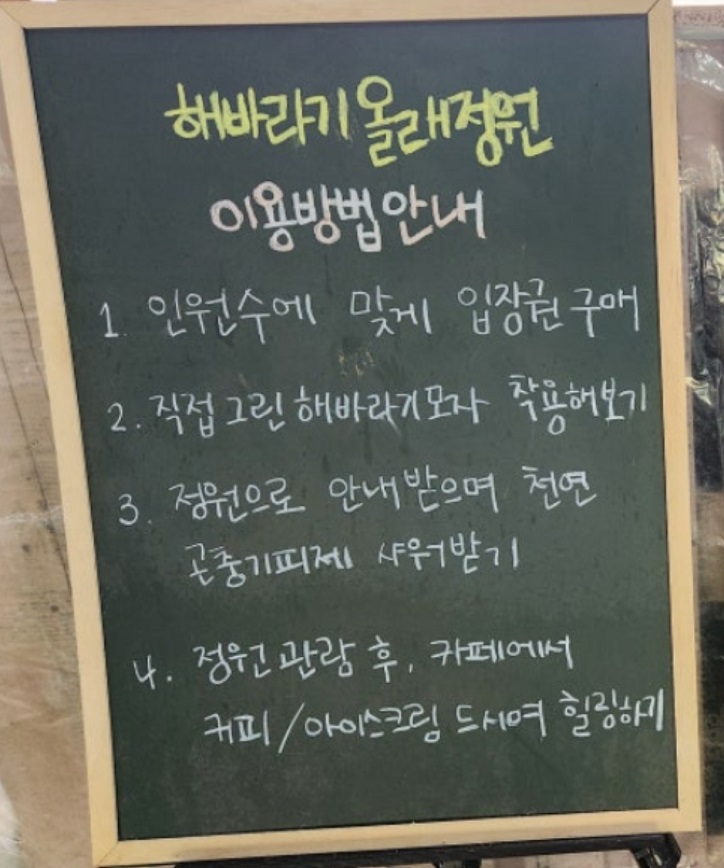 해바라기 올래정원
이용방법 안내
1. 인원수에 맞게 입장권 구매
2. 직접 그린 해바라기모자 착용해보기
3. 정원으로 안내받으며 천연
곤충기피제 샤워받기
4. 정원 관람 후, 카페에서
커피/아이스크림 드시며 힐링하기